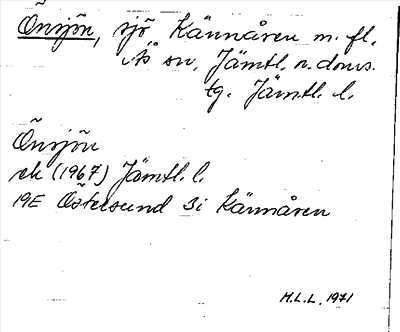 Önsjön, sjö Kännåren m. fl.
Ås sn, Jämtl. n. doms.
tg. Jämtl. l.
Önsjön
ek (1967) Jämtl. l.
19E Östersund 3i Kännåren
H.L.L. 1971